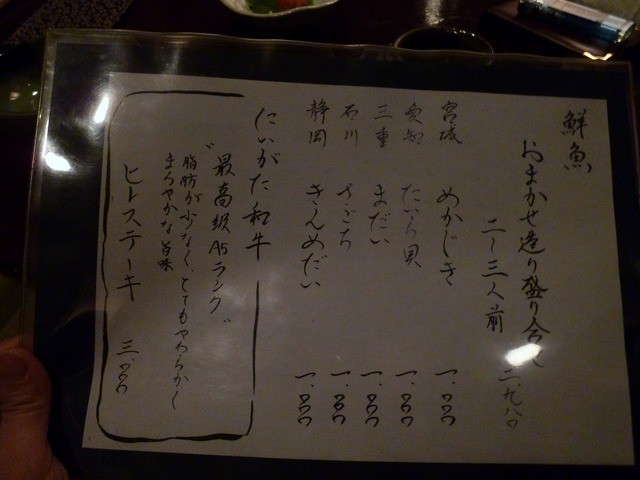 鮮魚
おまかせ造り盛り合せ
二〜三人前 二、九八〇
宮城 めかじき 一、〇〇〇
愛知 たいら貝 一、〇〇〇
三重 まだい 一、〇〇〇
石川 さごち 一、〇〇〇
静岡 きんめだい 一、〇〇〇
にいがた和牛
"最高級A5ランク"
脂肪が少なく、とてもやわらかく
まろやかな旨味
ヒレステーキ 三、〇〇〇